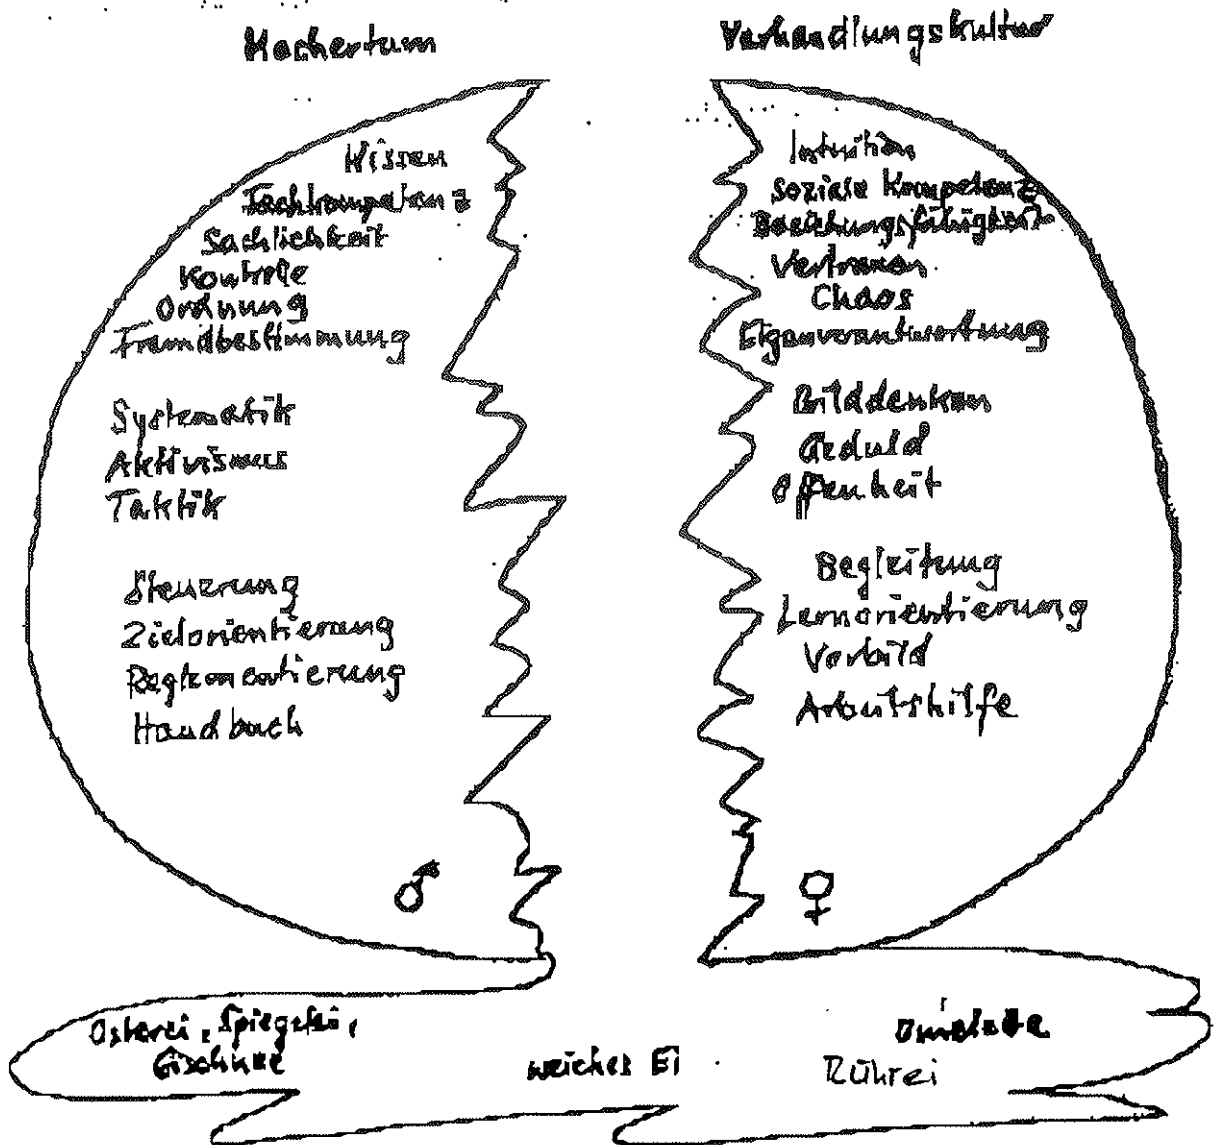 Machertum
Verhandlungskultur
Wissen
Fachkompetenz
Sachlichkeit
Kontrolle
Ordnung
Fremdbestimmung
Systematik
Aktivismus
Taktik
Steuerung
Zielorientierung
Reglementierung
Handbuch
♂
Intuition
Soziale Kompetenz
Beziehungsfähigkeit
Vertrauen
Chaos
Eigenverantwortung
Bilddenken
Geduld
Offenheit
Begleitung
Lernorientierung
Vorbild
Arbeitshilfe
♀
Osterei, Spiegelei,
Eischnee
weiches Ei
Omelette
Rührei